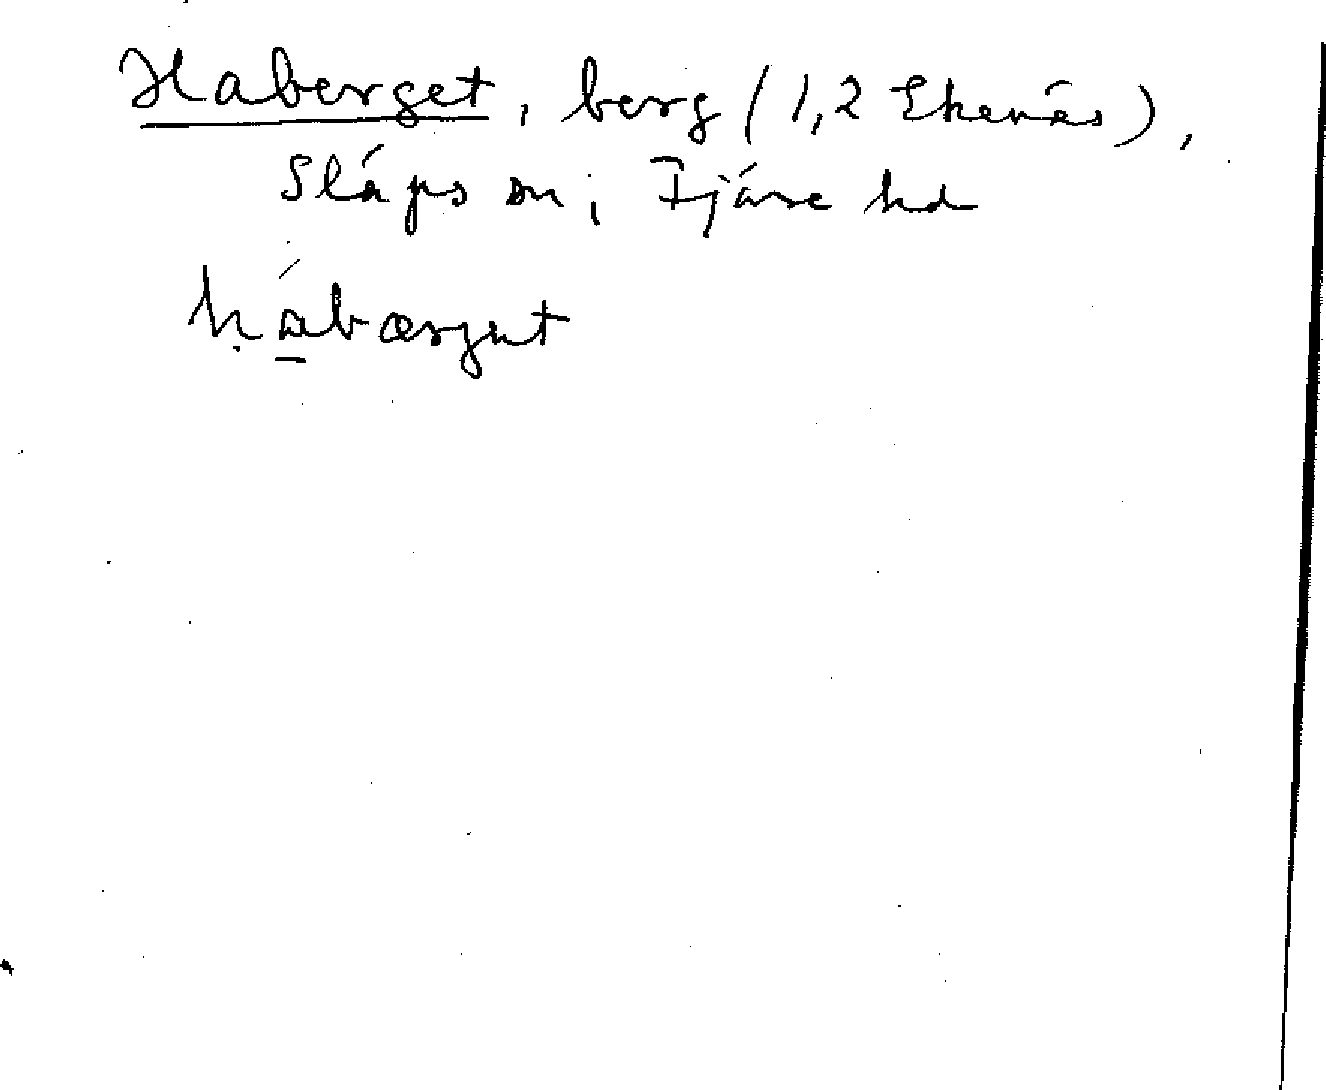 Haberget, berg (1,2 Ekenäs),
Släps sn; Fjäre hd
hábærjut